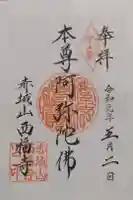 奉拝
令和元年五月二日
本尊阿弥陀佛
赤城山西福寺